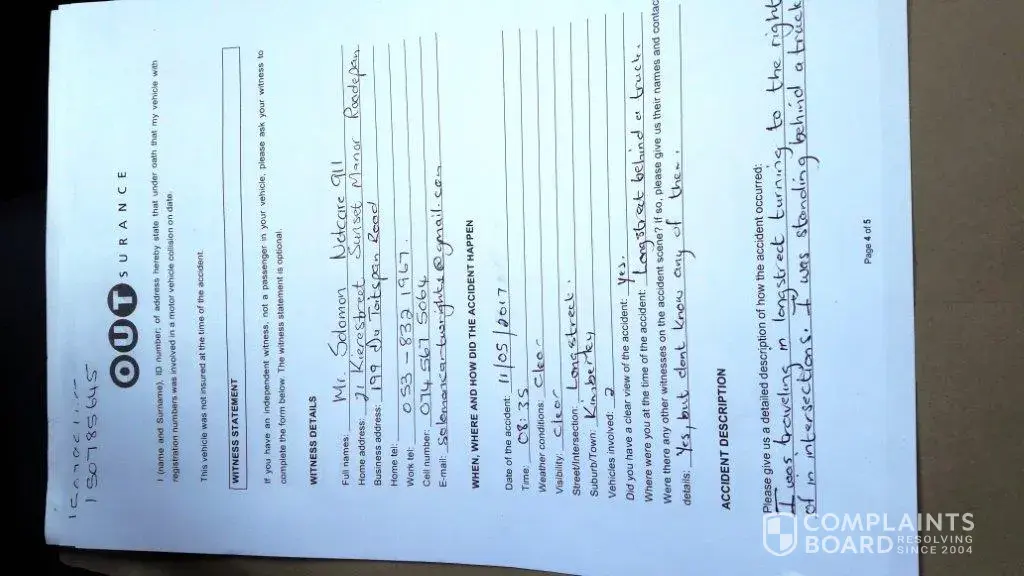 150785645
OUTSURANCE
I (name and Surname), ID number; of address hereby state that under oath that my vehicle with
registration numbers was involved in a motor vehicle collision on date.
This vehicle was not insured at the time of the accident.
WITNESS STATEMENT
If you have an independent witness, not a passenger in your vehicle, please ask your witness to
complete the form below. The witness statement is optional.
WITNESS DETAILS
Full names: Mr. Solomon Netcare 911
Home address: 21 Kierestreet Sunset Manor Roodepan
Business address: 199 Du Toitspan Road
Home tel:
Work tel: 053-832 1967.
Cell number: 074 567 5064
E-mail: @gmail.com
WHEN, WHERE AND HOW DID THE ACCIDENT HAPPEN
Date of the accident: 11/05/2017
Time: 08:35
Weather conditions: clear
Visibility: clear
Street/Intersection: Longstreet.
Suburb/Town: Kimberley
Vehicles involved: 2
Did you have a clear view of the accident: Yes.
Where were you at the time of the accident: Longstreet behind a truck.
Were there any other witnesses on the accident scene? If so, please give us their names and contac
details: Yes, but dont know any of them.
ACCIDENT DESCRIPTION
Please give us a detailed description of how the accident occurred:
I was traveling in longstreet turning to the right
of in intersections. I was standing behind a truck
Page 4 of 5
COMPLAINTS
BOARD RESOLVING
SINCE 2004